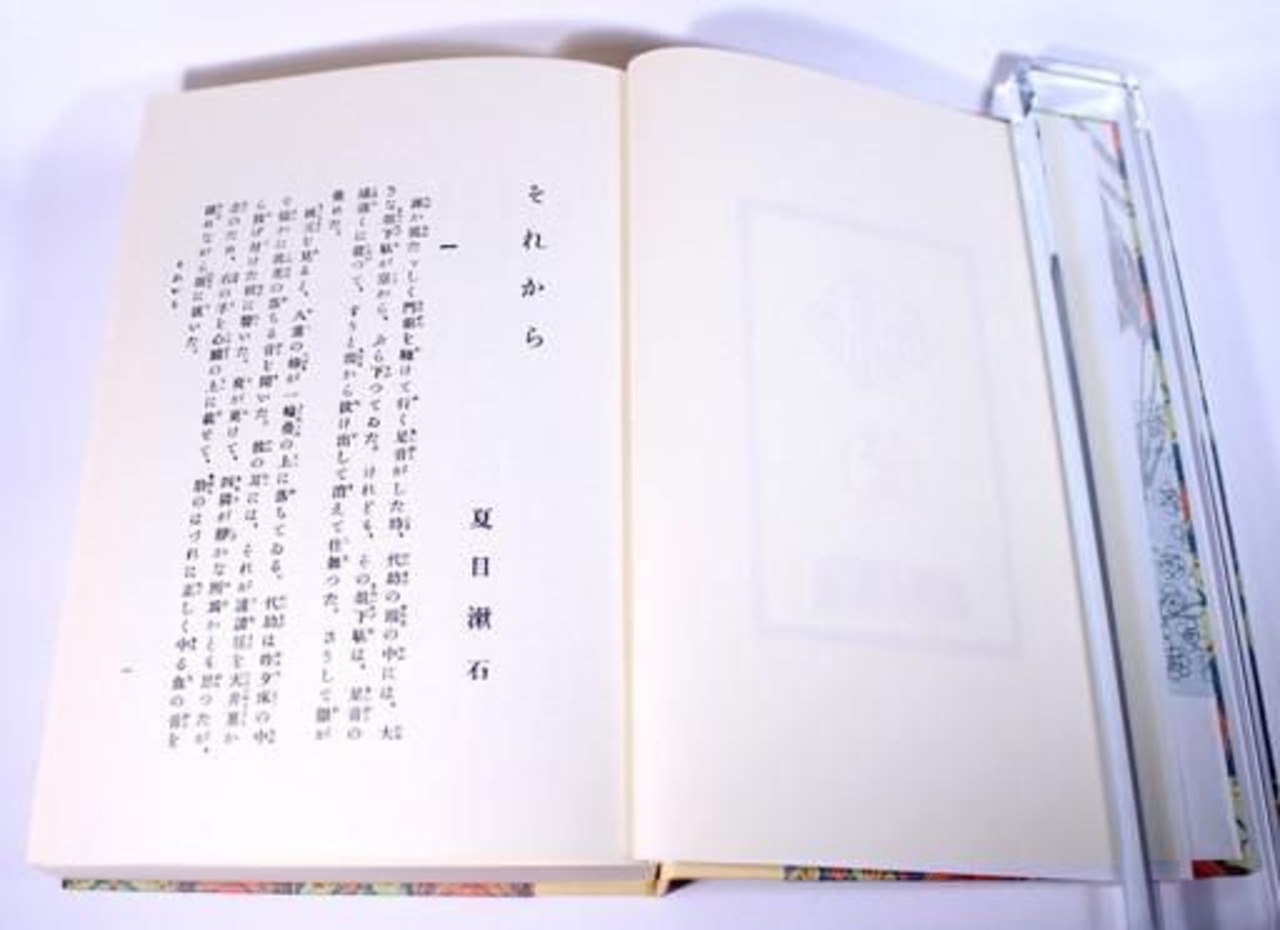 それから
夏目漱石
一
誰か慌たゞしく門前を馳けて行く足音がした時、代助の頭の中には、大
きな俎下駄が空から、ぶら下つてゐた。けれども、その俎下駄は、足音の
遠退くに従つて、すうと頭から抜け出して消えて仕舞つた。さうして眼が
覚めた。
枕元を見ると、八重の椿が一輪畳の上に落ちてゐる。代助は昨夕床の中
で慥かに此花の落ちる音を聞いた。彼の耳には、それが護謨毬を天井裏か
ら投げ付けた程に響いた。夜が更けて、四隣が静かな所為かとも思つたが、
念のため、右の手を心臓の上に載せて、肋のはづれに正しく中る血の音を
確めながら眠に就いた。
それから
一